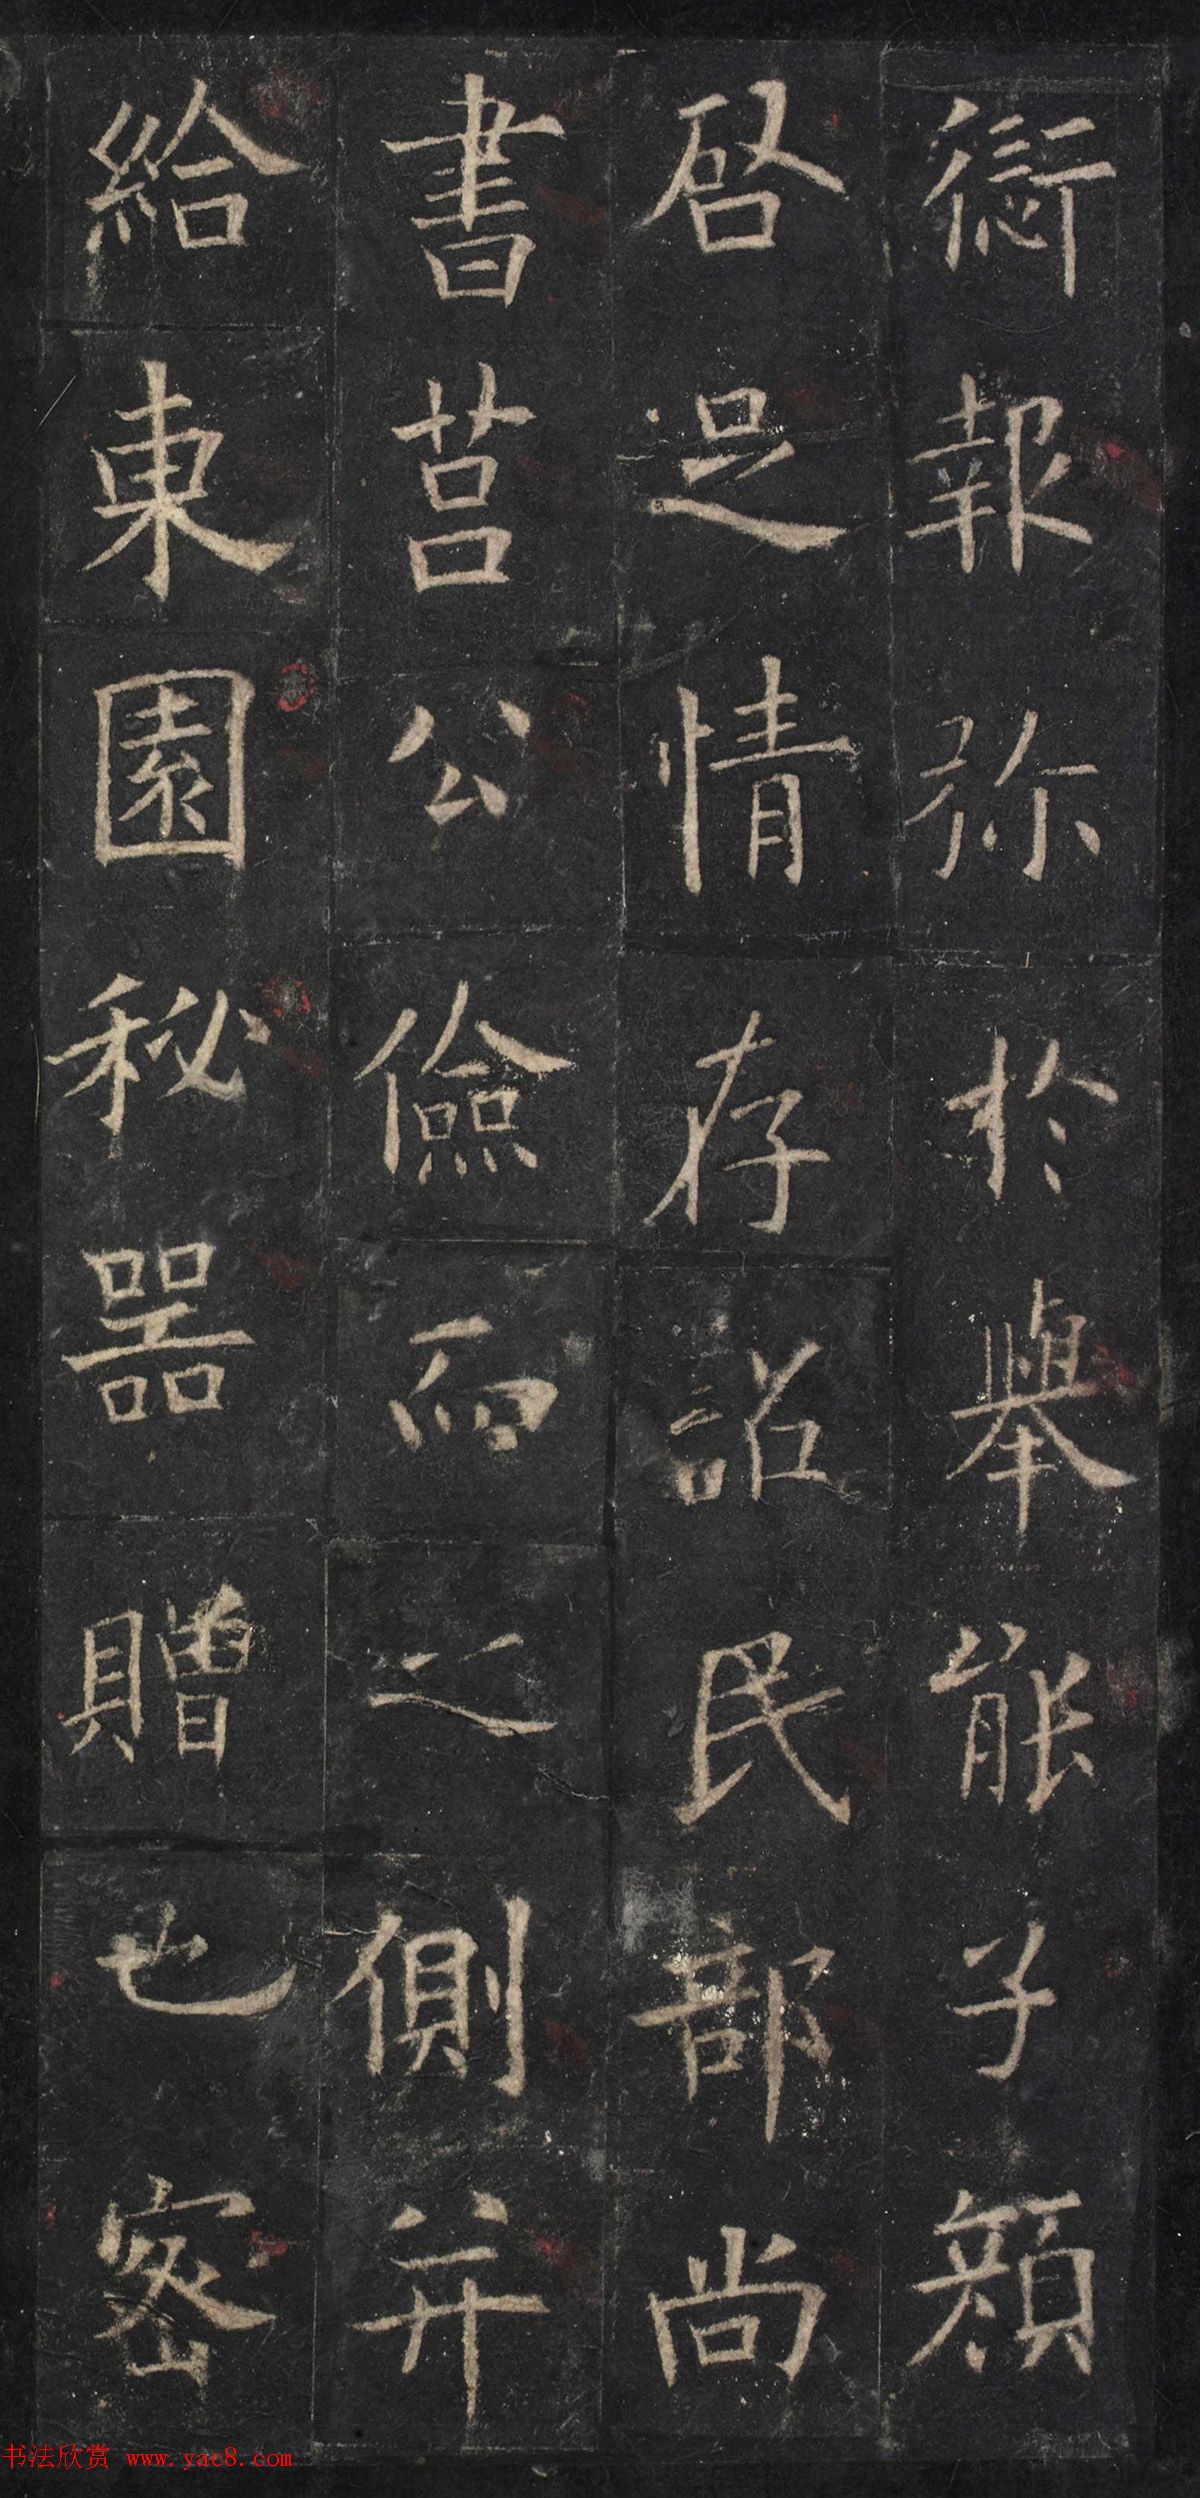 愆報弥於舉能子顏
啓足情存詔民部尚
書莒公儉而之側并
給東園秘噐贈也密
书法欣赏 www.yac8.com